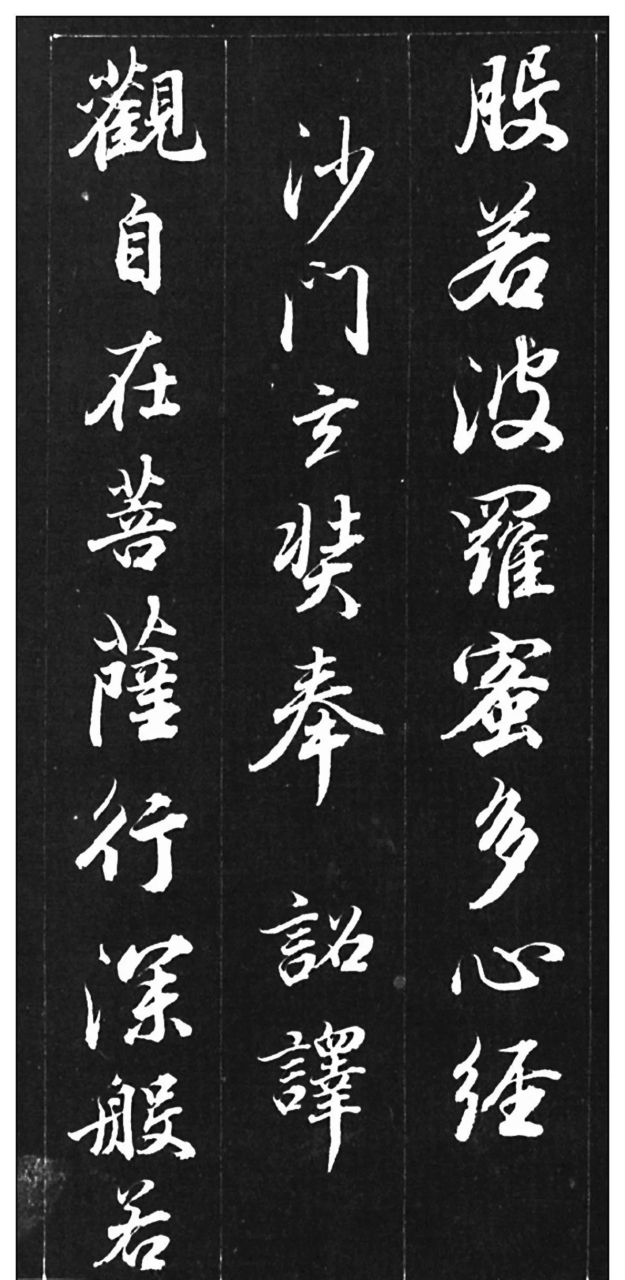 般若波羅蜜多心経
沙門玄奘奉 詔譯
觀自在菩薩行深般若